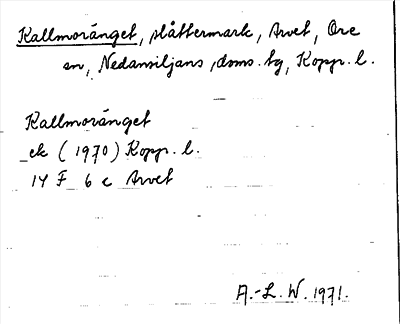 Kallmoränget, slåttermark, Arvet, Ore
sn, Nedansiljans doms. tg, Kopp. l.
Kallmoränget
ek (1970) Kopp. l.
14 F 6 c Arvet
A.-L. W. 1971.